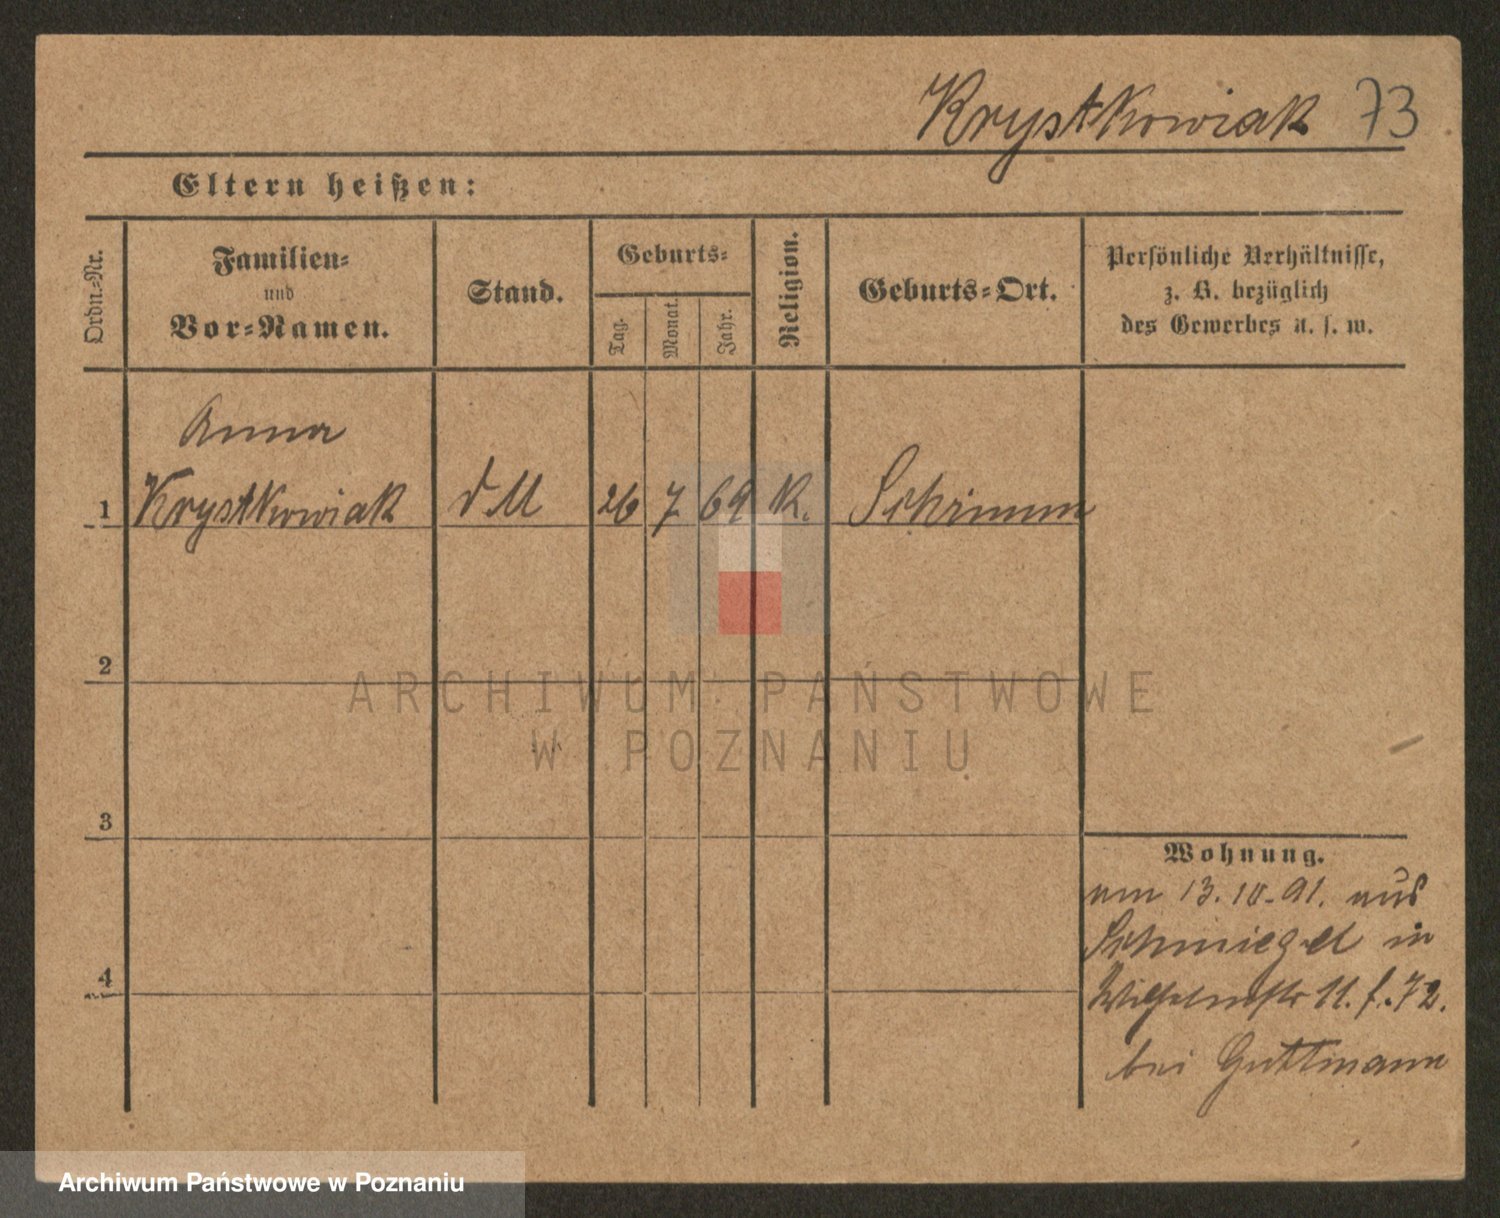 Krystkowiak 73
Eltern heißen:
Ordn.-Nr.
Familien-
und
Vor-Namen.
Stand.
Geburts-
Tag.
Monat.
Jahr.
Religion.
Geburts-Ort.
Persönliche Verhältnisse,
z. B. bezüglich
des Gewerbes u. s. w.
Anna
1 Krystkowiak d M 26 7 69 K. Schrimm
2
ARCHIWUM PAŃSTWOWE
W POZNANIU
3
Wohnung.
am 13. 10. 91. aus
Schmiegel in
4
Wilhelmstr 11. f. 72.
bei Guttmann
Archiwum Państwowe w Poznaniu